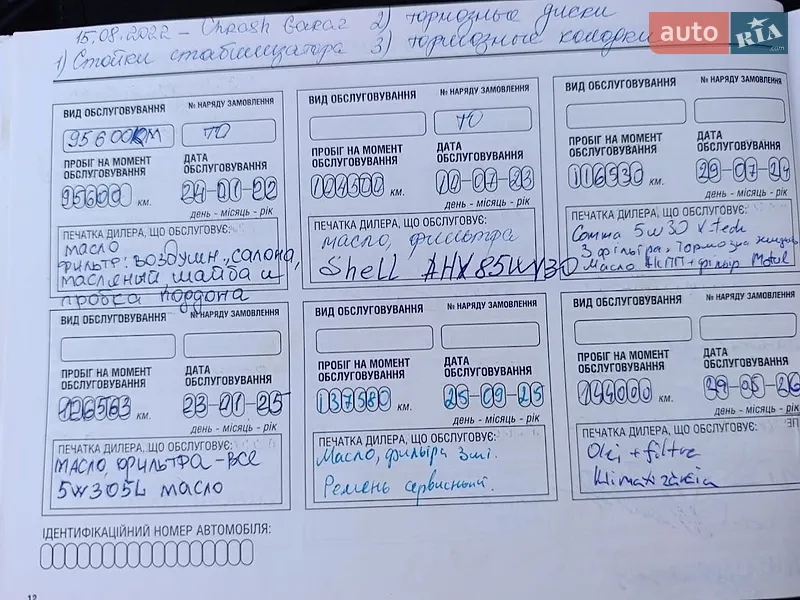 15.08.2022 – Chrash Garag 2) тормозные диски
1) Стойки стабилизатора 3) тормозные колодки
auto RIA.com
ВИД ОБСЛУГОВУВАННЯ № НАРЯДУ ЗАМОВЛЕННЯ
95600КМ ТО
ПРОБІГ НА МОМЕНТ ОБСЛУГОВУВАННЯ ДАТА ОБСЛУГОВУВАННЯ
95600 КМ. 24-01-22
день - місяць - рік
ПЕЧАТКА ДИЛЕРА, ЩО ОБСЛУГОВУЄ:
масло
фильтр: воздушн., салона,
масляный, шайба и
пробка поддона
ВИД ОБСЛУГОВУВАННЯ № НАРЯДУ ЗАМОВЛЕННЯ
ТО
ПРОБІГ НА МОМЕНТ ОБСЛУГОВУВАННЯ ДАТА ОБСЛУГОВУВАННЯ
104300 КМ. 10-07-23
день - місяць - рік
ПЕЧАТКА ДИЛЕРА, ЩО ОБСЛУГОВУЄ:
масло, фильтра
Shell AHX 8 5W30
ВИД ОБСЛУГОВУВАННЯ № НАРЯДУ ЗАМОВЛЕННЯ
ПРОБІГ НА МОМЕНТ ОБСЛУГОВУВАННЯ ДАТА ОБСЛУГОВУВАННЯ
116530 КМ. 29-07-24
день - місяць - рік
ПЕЧАТКА ДИЛЕРА, ЩО ОБСЛУГОВУЄ:
Comma 5w30 X tech
3 фільтра, Тормозна
Масло АКПП + фільтр Motul
ВИД ОБСЛУГОВУВАННЯ № НАРЯДУ ЗАМОВЛЕННЯ
ПРОБІГ НА МОМЕНТ ОБСЛУГОВУВАННЯ ДАТА ОБСЛУГОВУВАННЯ
126563 КМ. 23-01-25
день - місяць - рік
ПЕЧАТКА ДИЛЕРА, ЩО ОБСЛУГОВУЄ:
масло, фильтра - все
5w30 5L масло
ВИД ОБСЛУГОВУВАННЯ № НАРЯДУ ЗАМОВЛЕННЯ
ПРОБІГ НА МОМЕНТ ОБСЛУГОВУВАННЯ ДАТА ОБСЛУГОВУВАННЯ
137580 КМ. 25-09-25
день - місяць - рік
ПЕЧАТКА ДИЛЕРА, ЩО ОБСЛУГОВУЄ:
Масло, фильтра 3шт.
Ремень сервисный.
ВИД ОБСЛУГОВУВАННЯ № НАРЯДУ ЗАМОВЛЕННЯ
ПРОБІГ НА МОМЕНТ ОБСЛУГОВУВАННЯ ДАТА ОБСЛУГОВУВАННЯ
144000 КМ. 29-05-26
день - місяць - рік
ПЕЧАТКА ДИЛЕРА, ЩО ОБСЛУГОВУЄ:
Olej + filtre
ІДЕНТИФІКАЦІЙНИЙ НОМЕР АВТОМОБІЛЯ:
12